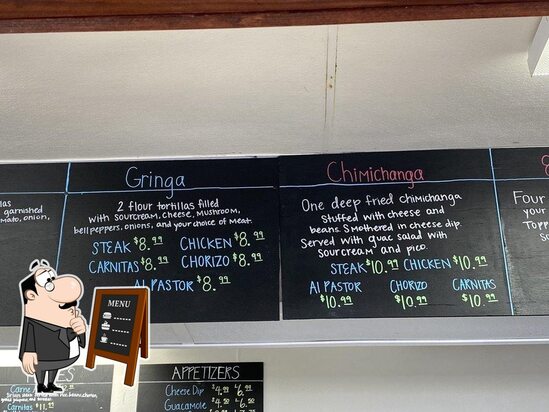 garnished
onion,
Gringa
2 flour tortillas filled
with sourcream, cheese, mushroom,
bell peppers, onions, and your choice of meat.
STEAK $8.99 CHICKEN $8.99
CARNITAS $8.99 CHORIZO $8.99
Al PASTOR $8.99
Chimichanga
One deep fried chimichanga
stuffed with cheese and
beans smothered in cheese dip.
Served with guac salad with
sourcream and pico.
STEAK $10.99 CHICKEN $10.99
Al PASTOR CHORIZO CARNITAS
$10.99 $10.99 $10.99
Four
your
Topp
MENU
Carne
Carnitas $11.
APPETIZERS
Cheese Dip
Guacamole